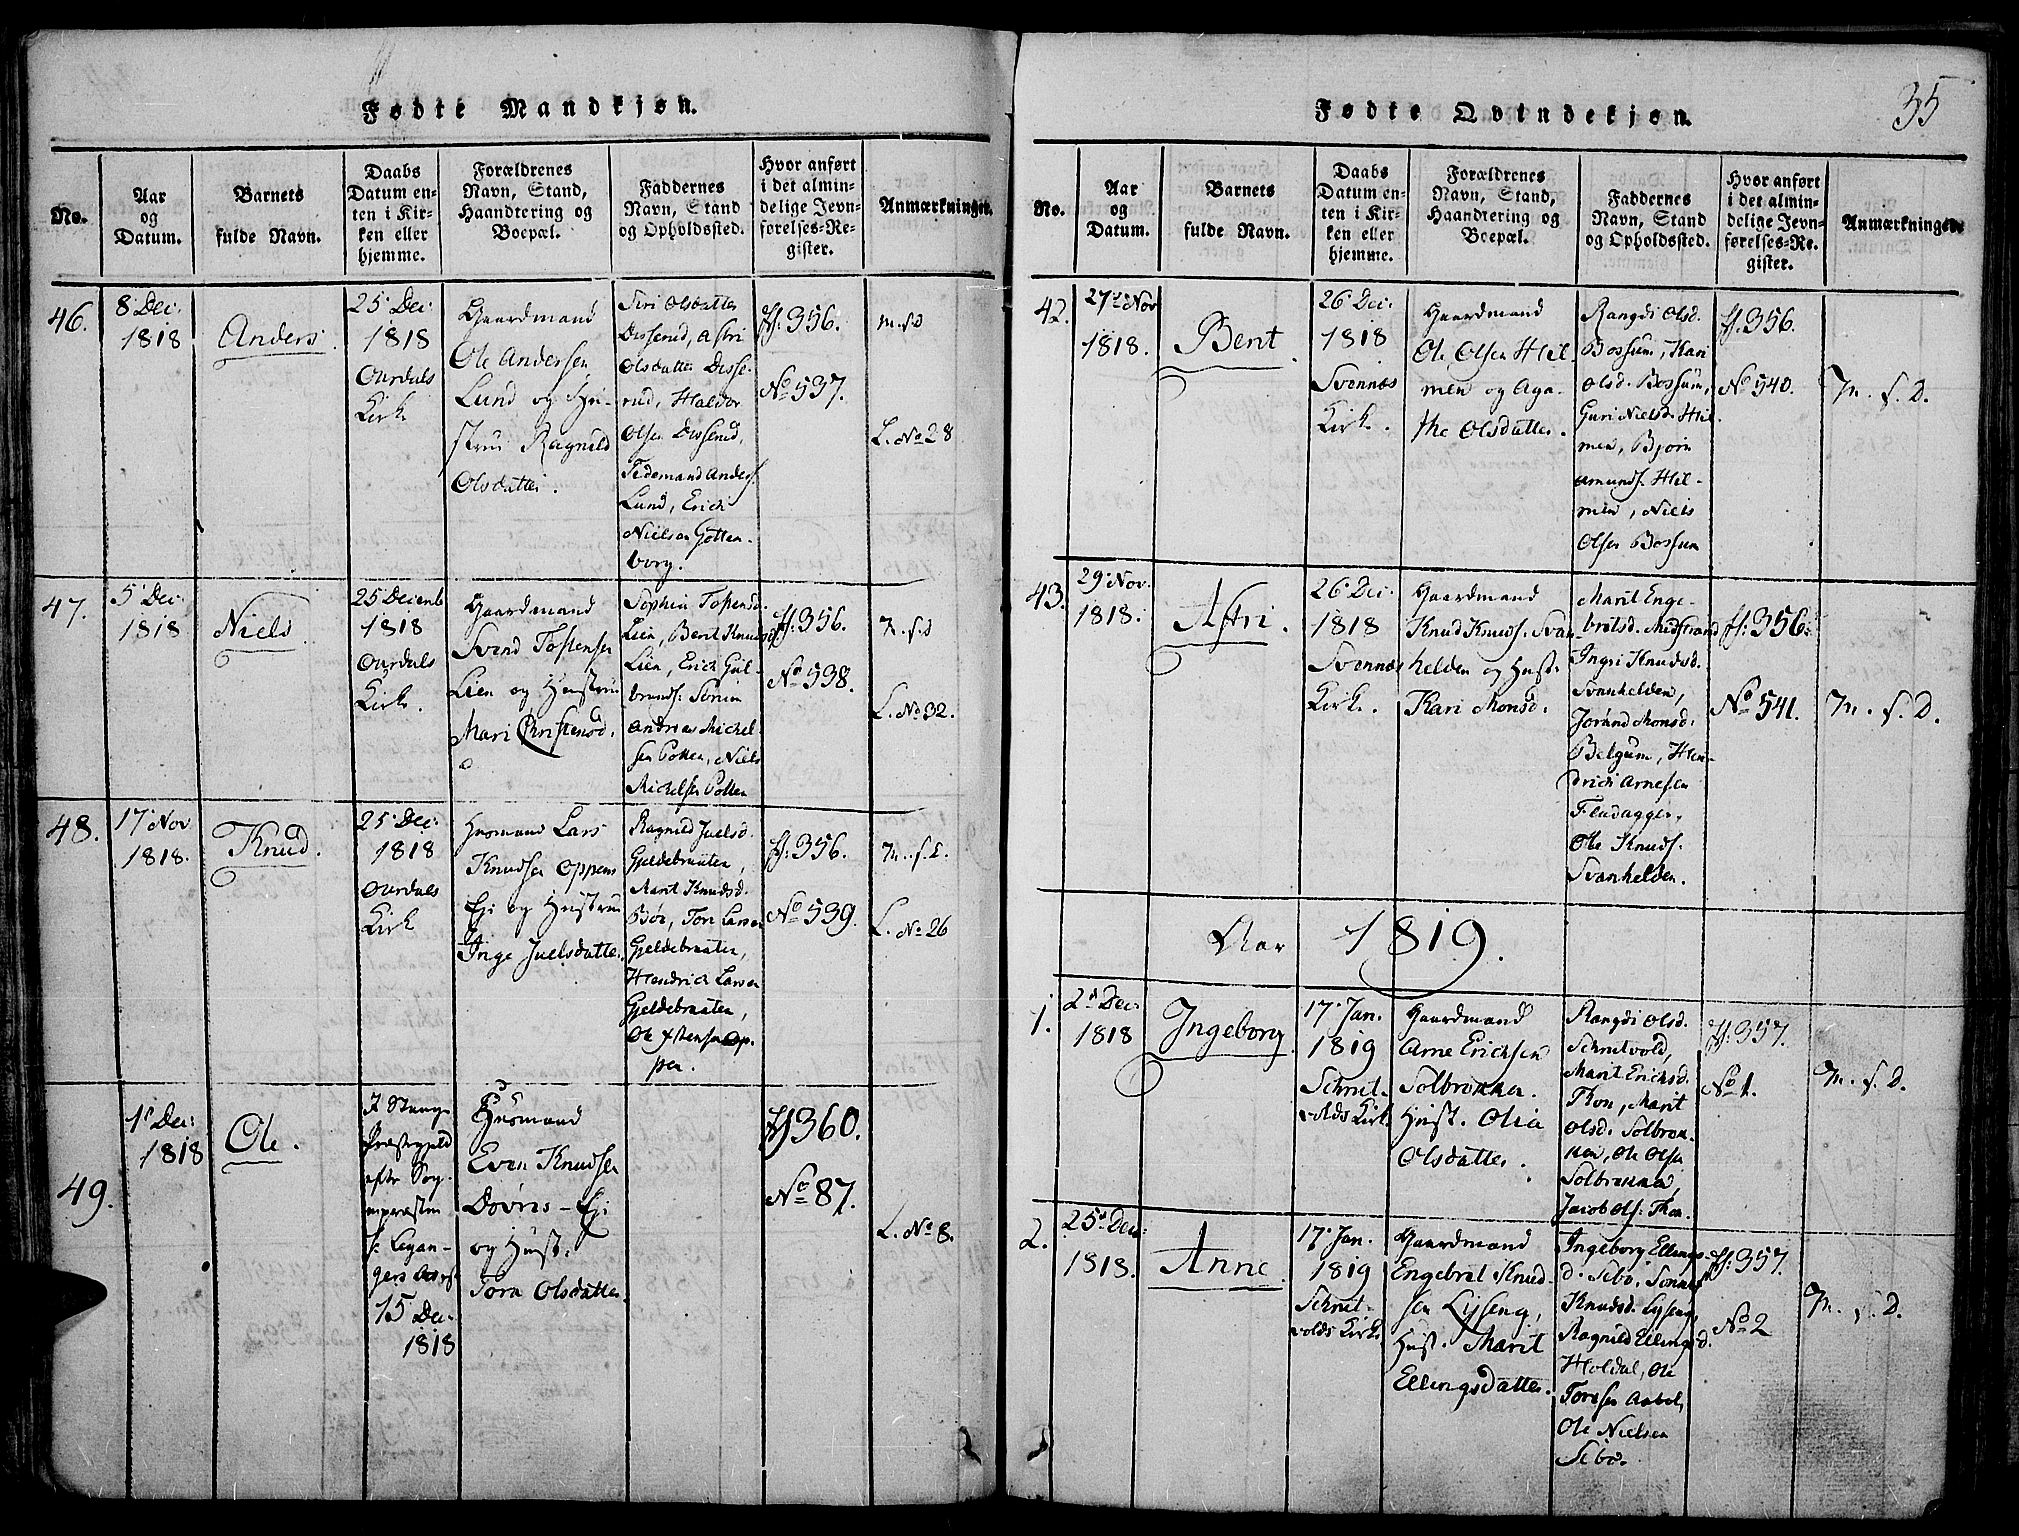 35
Fødte Mandkjøn.
No.
Aar
og
Datum.
Barnets
fulde Navn.
Daabs
Datum en-
ten i Kir-
ken eller
hjemme.
Forældrenes
Navn, Stand,
Haandtering og
Boepæl.
Faddernes
Navn, Stand
og Opholdssted.
Hvor anført
i det almin-
delige Jevn-
førelses-Re-
gister.
Anmærkninger.
46.
8 Dec:
1818
Anders.
25 Dec:
1818
Ourdals
Kirke
Gaardmand
Ole Andersen
Lund og Hu-
strue Ragnild
Olsdatter.
Siri Olsdatter
Disserud, Astri
Olsdatter Disse-
rud, Haldor
Olsen Disserud,
Tidemand Anders.
Lund, Erich
Nielsen Gotten-
borg.
ff: 356.
No 537.
m.f.d
L. No 28
47.
5 Dec:
1818
Niels
25 Decemb
1818
Ourdals
Kirke.
Gaardmand
Svend Tostensen
Lien og Hustrue
Mari Christensd.
Sophia Tostensd.
Lien, Berit Knudsd
Lien, Erich Gul-
brands:
Andreas Michel-
sen Potten, Niels
Michelsen Potten
ff: 356.
No 538.
L. No 32.
48.
17 Nov
1818.
Knud.
25 Dec:
1818
Ourdals
Kirke
Husmand Lars
Knudsen Oppens
Eje og Hustrue
Inge Juelsdatter.
Ragnild Juelsd.
Gjeldebraaten,
Marit Knudsd.
Bøe, Tore Larsen
Gjeldebraaten,
Hendrich Larsen
Gjeldebraaten,
Ole Østensen Op-
pen.
ff: 356.
No 539.
L. No 26
49.
1 Dec:
1818
Ole.
I Stange
Præstegjeld
efter Sog-
nepræsten
15 Dec:
1818
Husmand
Even Knudsen
Dovres-Eje
og Hust:
Tora Olsdatter.
ff 360.
No 87.
L. No 8.
Fødte Qvindekjøn.
No.
Aar
og
Datum.
Barnets
fulde Navn.
Daabs
Datum en-
ten i Kir-
ken eller
hjemme.
Forældrenes
Navn, Stand,
Haandtering og
Boepæl.
Faddernes
Navn, Stand
og Opholdssted.
Hvor anført
i det almin-
delige Jevn-
førelses-Re-
gister.
Anmærkninger.
42.
27 Nov
1818.
Berit
26 Dec:
1818
Svennæs
Kirke.
Gaardmand
Ole Olsen Hil-
men og Aga-
the Olsdatter.
Rangdi Olsd.
Bossum, Kari
Olsd. Bossum,
Guri Nielsd. Hil-
men, Bjørn
Amunds. Hil-
men, Niels
Olsen Bossum
ff. 356.
No 540.
M. f. D.
43.
29 Nov.
1818.
Astri.
26 Dec:
1818
Svennæs
Kirke.
Gaardmand
Knud Knuds. Svan-
helden og Hust:
Kari Monsd.
Marit Enge-
bretsd. Midstrand
Ingri Knudsd.
Svanhelden,
Jorand Monsd:
Belgum, Hen-
drich Arnesen
Fludagger,
Ole Knuds.
Svanhelden.
ff: 356.
No 541.
M. f. D.
Aar 1819.
1.
2 Dec:
1818
Ingeborg
17 Jan.
1819
Schrut-
volds Kirke
Gaardmand
Arne Erichsen
Solbrækka.
Hust. Olia
Olsdatter.
Rangdi Olsd.
Schrutvold,
Marit Erichsd.
Thon, Marit
Olsd. Solbræk-
ken, Ole Olsen
Solbrækka,
Jacob Ols: Thon.
ff: 357.
No 1.
M. f. D.
2.
25 Dec:
1818.
Anne
17 Jan.
1819
Schrut-
volds Kirke.
Gaardmand
Engebret Knud-
sen Lysseng,
Hust. Marit
Ellingsdatter.
Ingeborg Ellings-
d. Sebø,
Knudsd. Lysseng,
Ragnild Ellingsd.
Holdal, Ole
Toresen Aabel,
Ole Nielsen
Sebø.
ff: 357.
No 2
M. f. D.